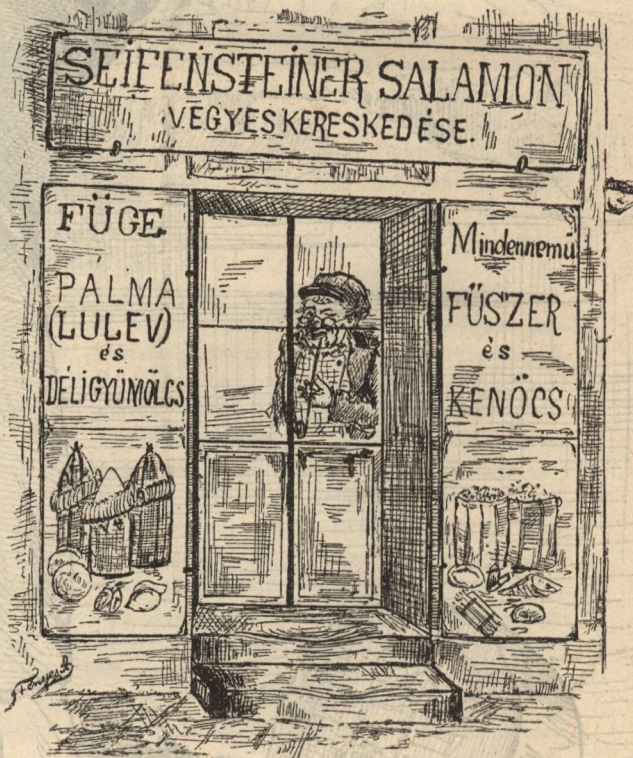 SEIFENSTEINER SALAMON
VEGYESKERESKEDÉSE.
FÜGE
PALMA
(LULEV)
és
DÉLIGYÜMÖLCS
Mindennemü
FÜSZER
és
KENÖCS